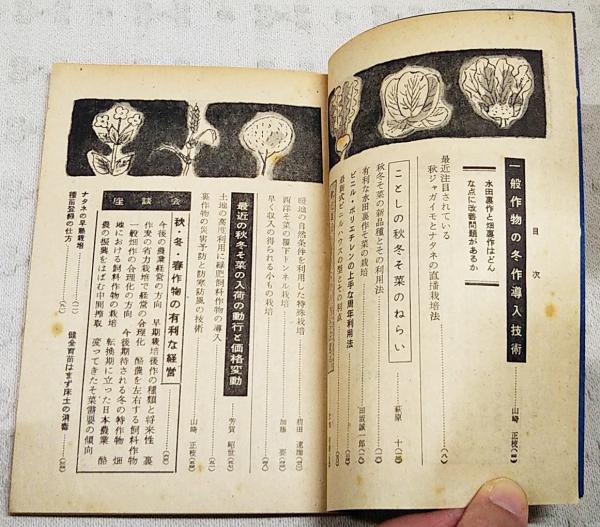 目次
一般作物の冬作導入技術
山崎 正枝
水田裏作と畑裏作はどん
な点に改善問題があるか
最近注目されている
秋ジャガイモとナタネの直播栽培法
ことしの秋冬そ菜のねらい
萩原 十
秋冬そ菜の新品種とその利用法
有利な水田裏作そ菜の栽培
田坂誠一郎
ビニル・ポリエチレンの上手な周年利用法
最新式ビニル・ハウスの型とその利点
暖地の自然条件を利用した特殊栽培
西洋そ菜の覆下トンネル栽培
加藤 要
早く収入の得られる小もの栽培
最近の秋冬そ菜の入荷の動行と価格変動
芳賀 昭世
土地の高度利用に緑肥飼料作物の導入
裏作物の災害予防と防寒防風の技術
山崎 正枝
座談会
秋・冬・春作物の有利な経営
今後の農業経営の方向 早期栽培後作の種類と将来性 裏
作麦の省力栽培で経営の合理化 酪農を左右する飼料作物
一般畑作の合理化の方向 今後期待される冬の特作物 畑
地における飼料作物の栽培 転換期に立った日本農業 酪
農の振興をはばむ中間搾取 変ってきたそ菜需要の傾向
ナタネの早熟栽培
種苗登録の仕方
健全育苗はまず床土の消毒